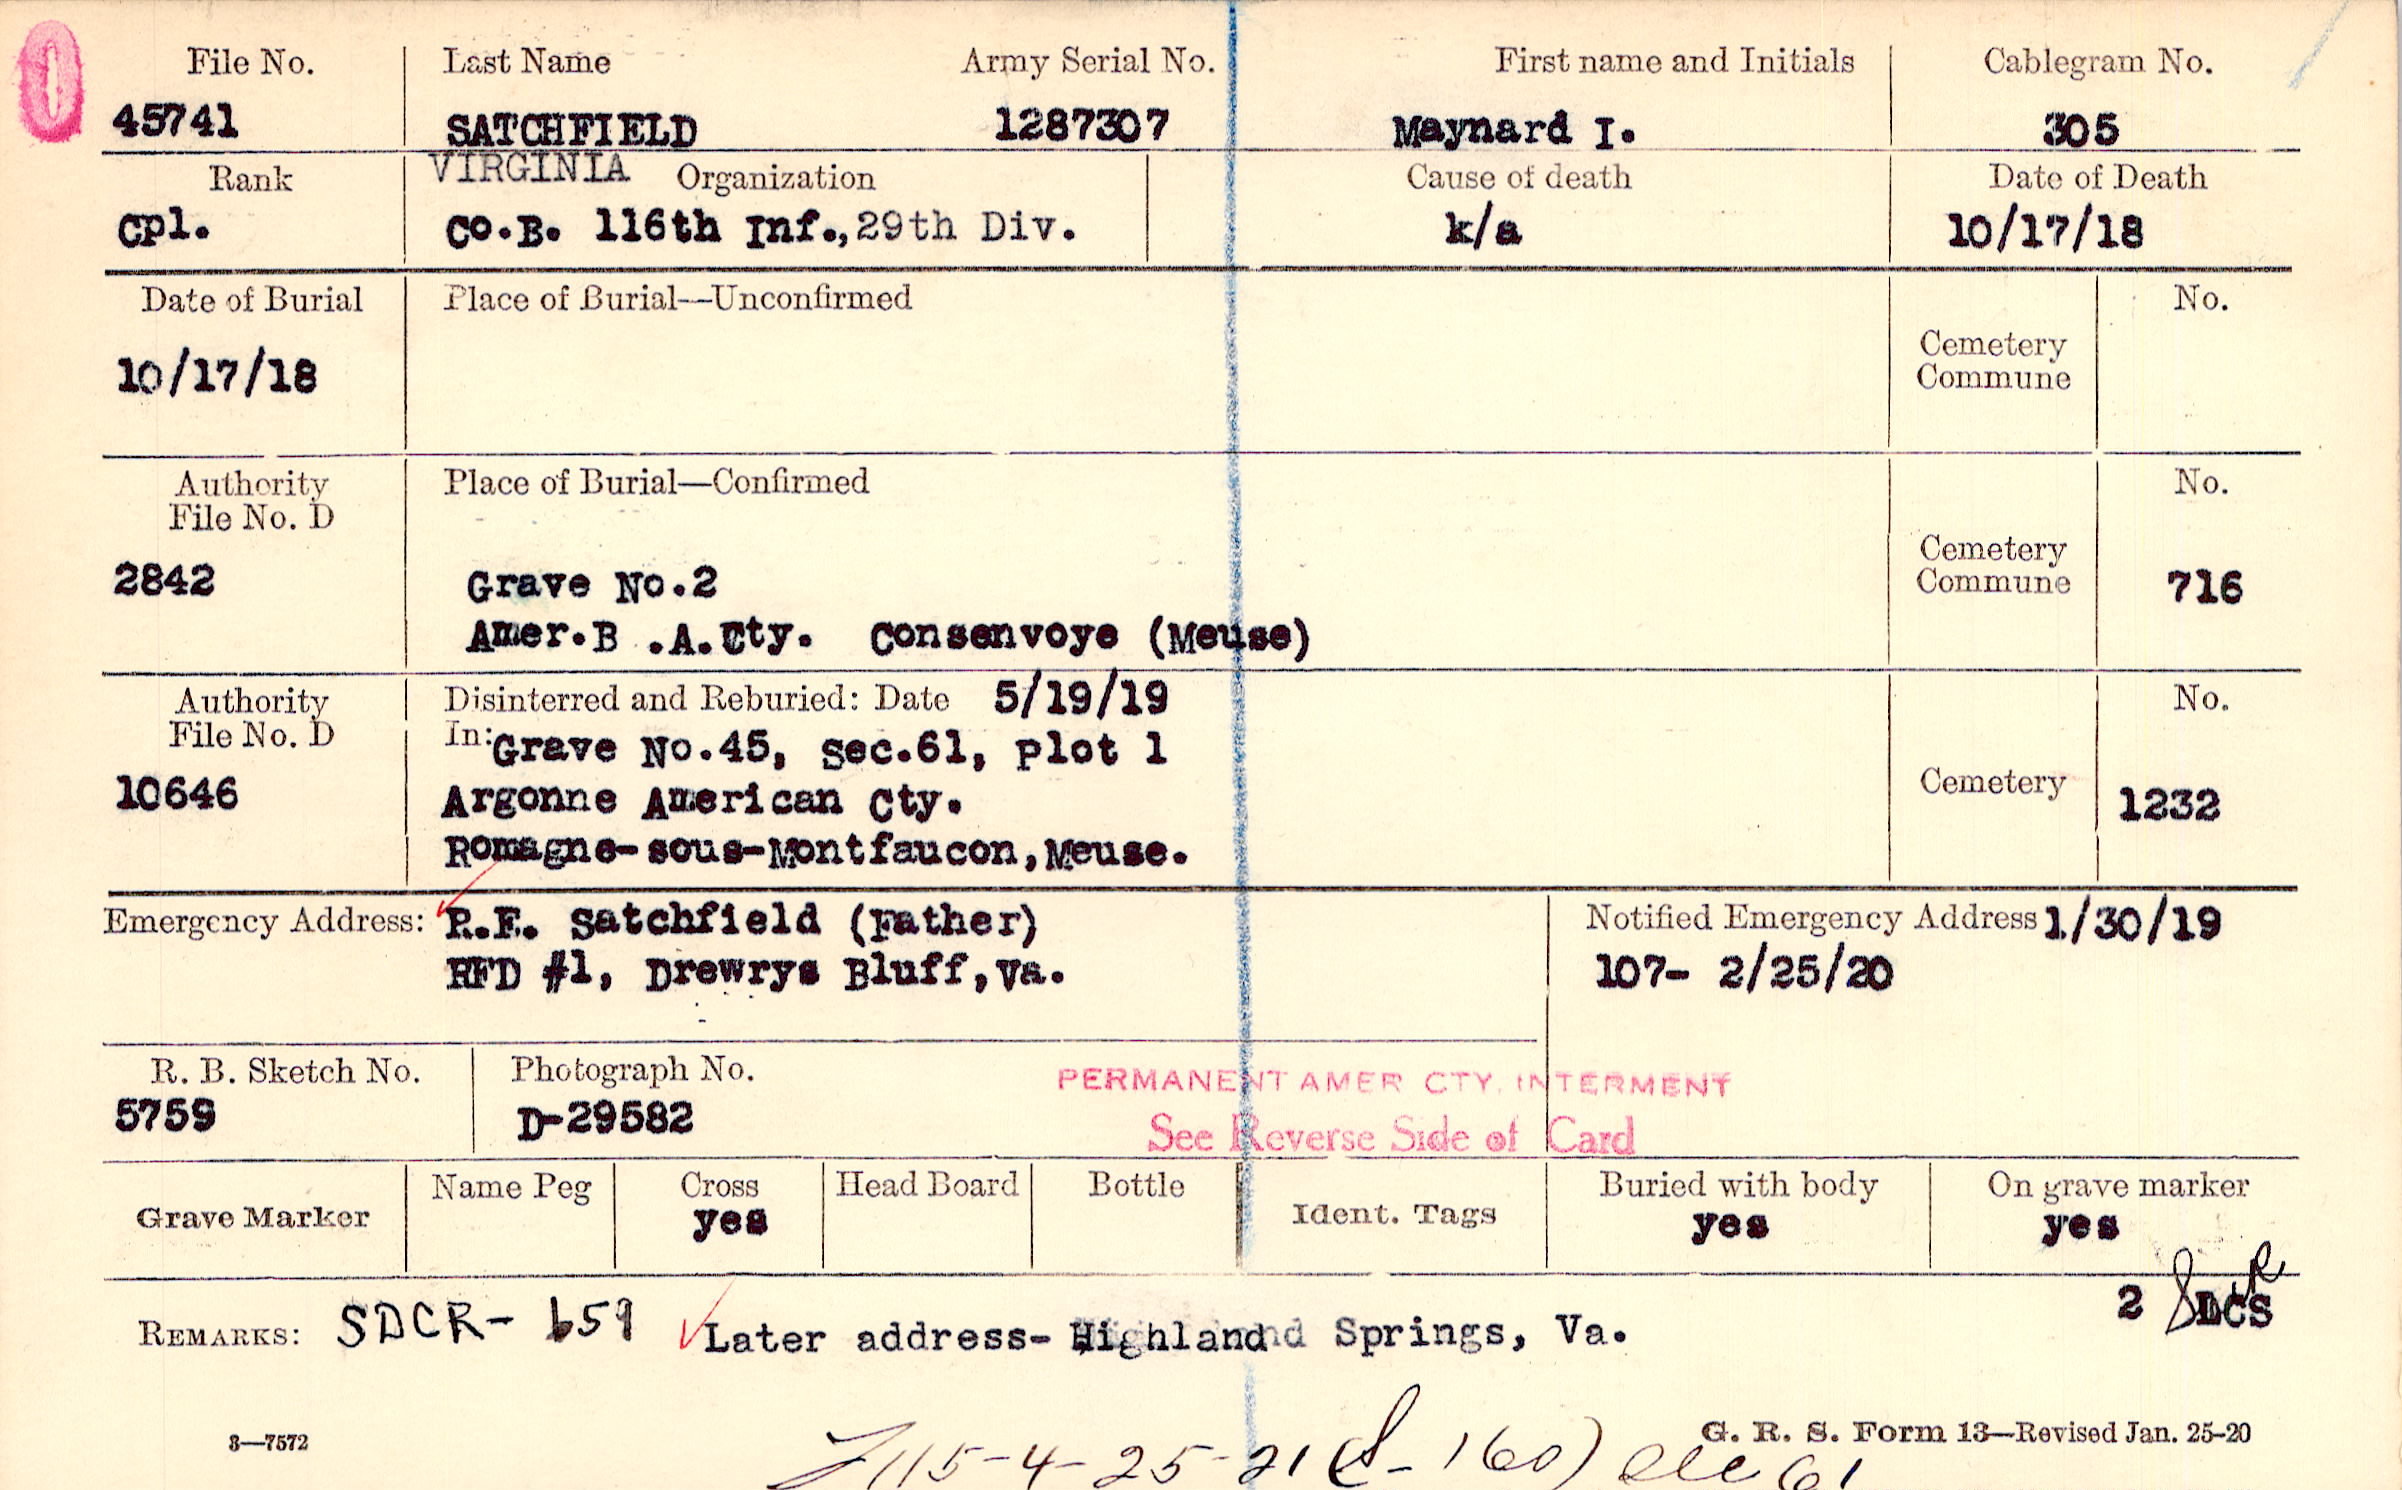 0
File No. Last Name Army Serial No. First name and Initials Cablegram No.
45741 SATCHFIELD 1287307 Maynard I. 305
Rank VIRGINIA Organization Cause of death Date of Death
Cpl. Co.B. 116th Inf.,29th Div. k/a 10/17/18
Date of Burial Place of Burial—Unconfirmed No.
Cemetery
Commune
10/17/18
Authority Place of Burial—Confirmed No.
File No. D
Cemetery
Commune
2842 Grave No.2 716
Amer.B .A.Cty. Consenvoye (Meuse)
Authority Disinterred and Reburied: Date 5/19/19 No.
File No. D In: Grave No.45, Sec.61, Plot 1
10646 Argonne American Cty. Cemetery 1232
Romagne-sous-Montfaucon,Meuse.
Emergency Address: R.F. Satchfield (Father) Notified Emergency Address 1/30/19
RFD #1, Drewrys Bluff,Va. 107- 2/25/20
R. B. Sketch No. Photograph No. PERMANENT AMER CTY. INTERMENT
5759 D-29582 See Reverse Side of Card
Name Peg Cross Head Board Bottle Buried with body On grave marker
Grave Marker yes Ident. Tags yes yes
2
REMARKS: SDCR- 659 Later address- Highland Springs, Va.
3—7572 G. R. S. Form 13—Revised Jan. 25-20
115-4-25-21 160) 61